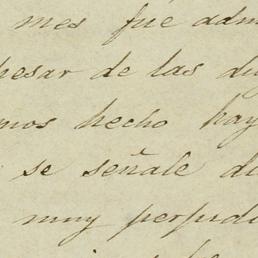 mes fué adm
pesar de las di
mos hecho hay
se señale di
muy perjudi